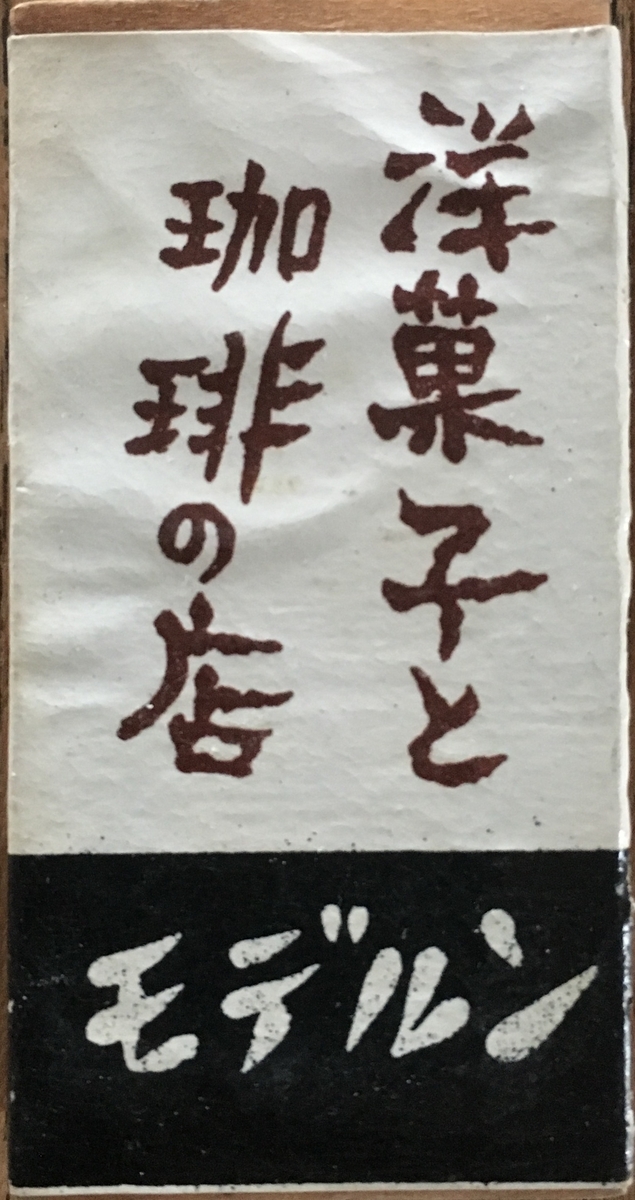 洋菓子と
珈琲の店
モデルン